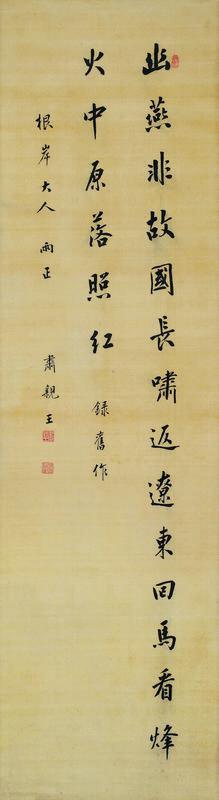 幽燕非故國長嘯返遼東回馬看烽
火中原落照紅
錄舊作
根岸大人 兩正
肅親王